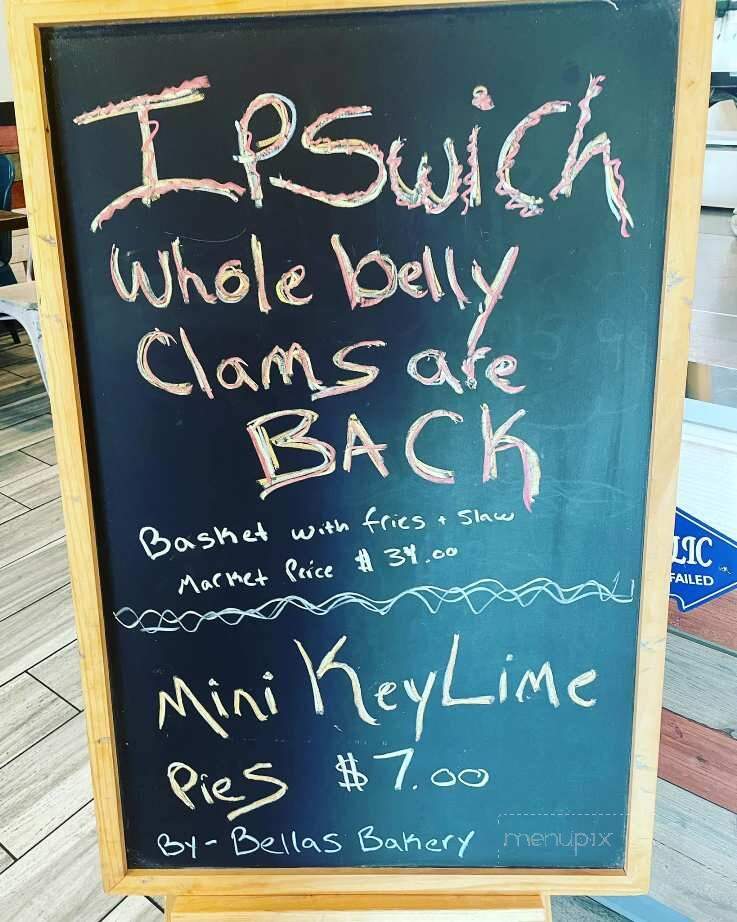 IPSwich
Whole belly
Clams are
BACK
Basket with fries + Slaw
Market Price $ 34.00
Mini Key Lime
Pies $7.00
By - Bellas Bakery
menupix
LIC
FAILED